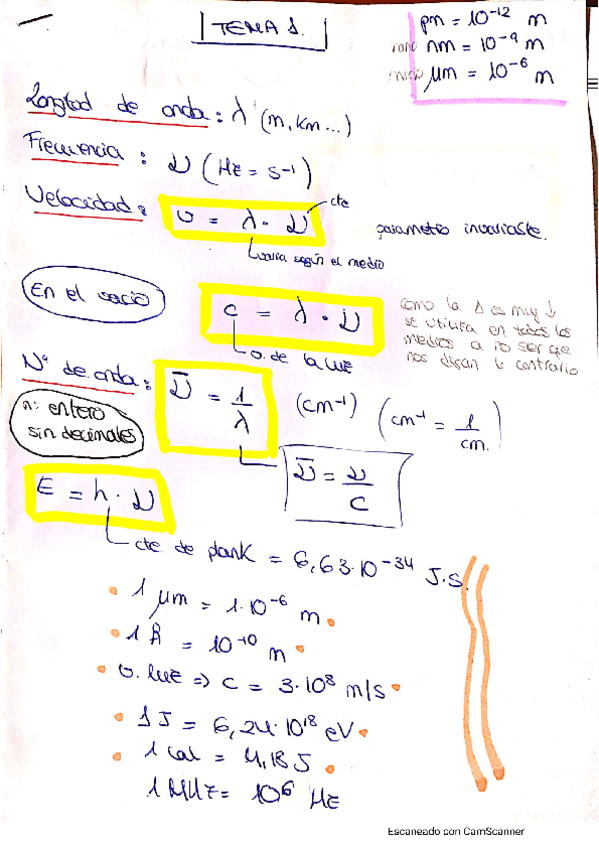 TEMA 1.
pm = 10⁻¹² m
nano nm = 10⁻⁹ m
micro μm = 10⁻⁶ m
Longitud de onda: λ (m, km...)
Frecuencia: ν (Hz = s⁻¹)
Velocidad: v = λ · ν
cte
parametro invariable.
varia según el medio
En el vacio
c = λ · ν
v. de la luz
como la Δ es muy ↓
se utiliza en todos los
medios a no ser que
nos digan lo contrario
Nº de onda: ν̄ = 1/λ (cm⁻¹) (cm⁻¹ = 1/cm.)
n: entero
sin decimales
ν̄ = ν/c
E = h · ν
cte de plank = 6,63·10⁻³⁴ J.s.
• 1 μm = 1·10⁻⁶ m •
• 1 Å = 10⁻¹⁰ m •
• v. luz => c = 3·10⁸ m/s •
• 1 J = 6,24·10¹⁸ eV •
• 1 cal = 4,18 J •
1 MHz = 10⁶ Hz
Escaneado con CamScanner